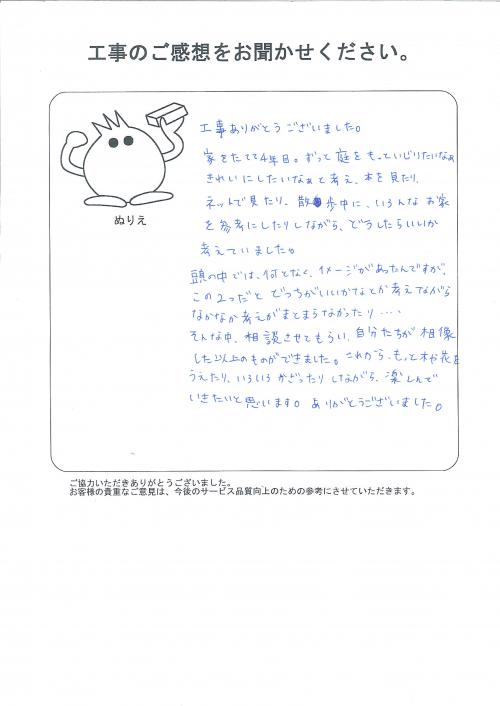 工事のご感想をお聞かせください。
工事ありがとうございました。
家をたてて4年目。ずっと庭をもっといじりたいなぁ
きれいにしたいなぁと考え、本を見たり、
ネットで見たり、散歩中に、いろんなお家
を参考にしたりしながら、どうしたらいいか
考えていました。
ぬりえ
頭の中では、何となく、イメージがあったんですが、
この2つだとどっちがいいかなとか考えながら
なかなか考えがまとまらなかったり・・・・
そんな中、相談させてもらい、自分たちが想像
した以上のものができました。これから、もっと木や花を
うえたり、いろいろかざったりしながら、楽しんで
いきたいと思います。ありがとうございました。
ご協力いただきありがとうございました。
お客様の貴重なご意見は、今後のサービス品質向上のための参考にさせていただきます。